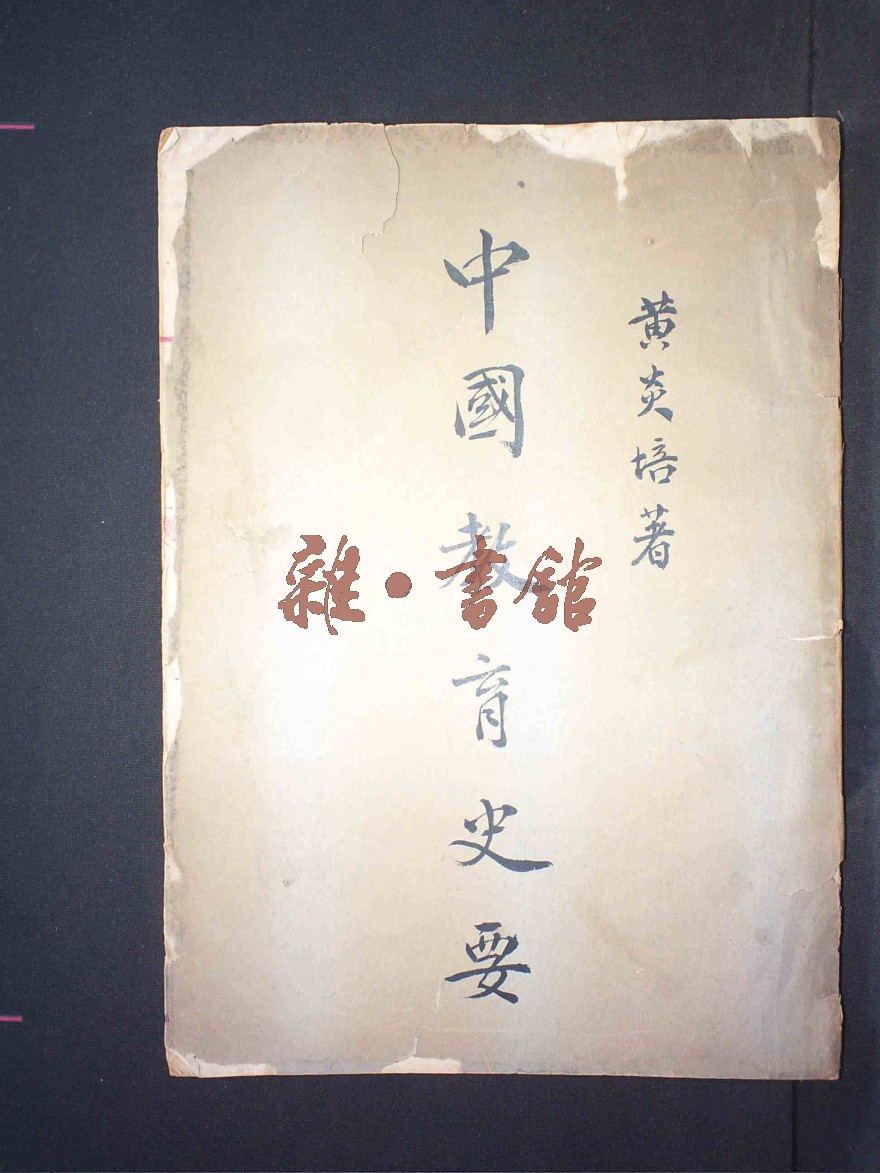 黄炎培著
中國教育史要
雜·書館